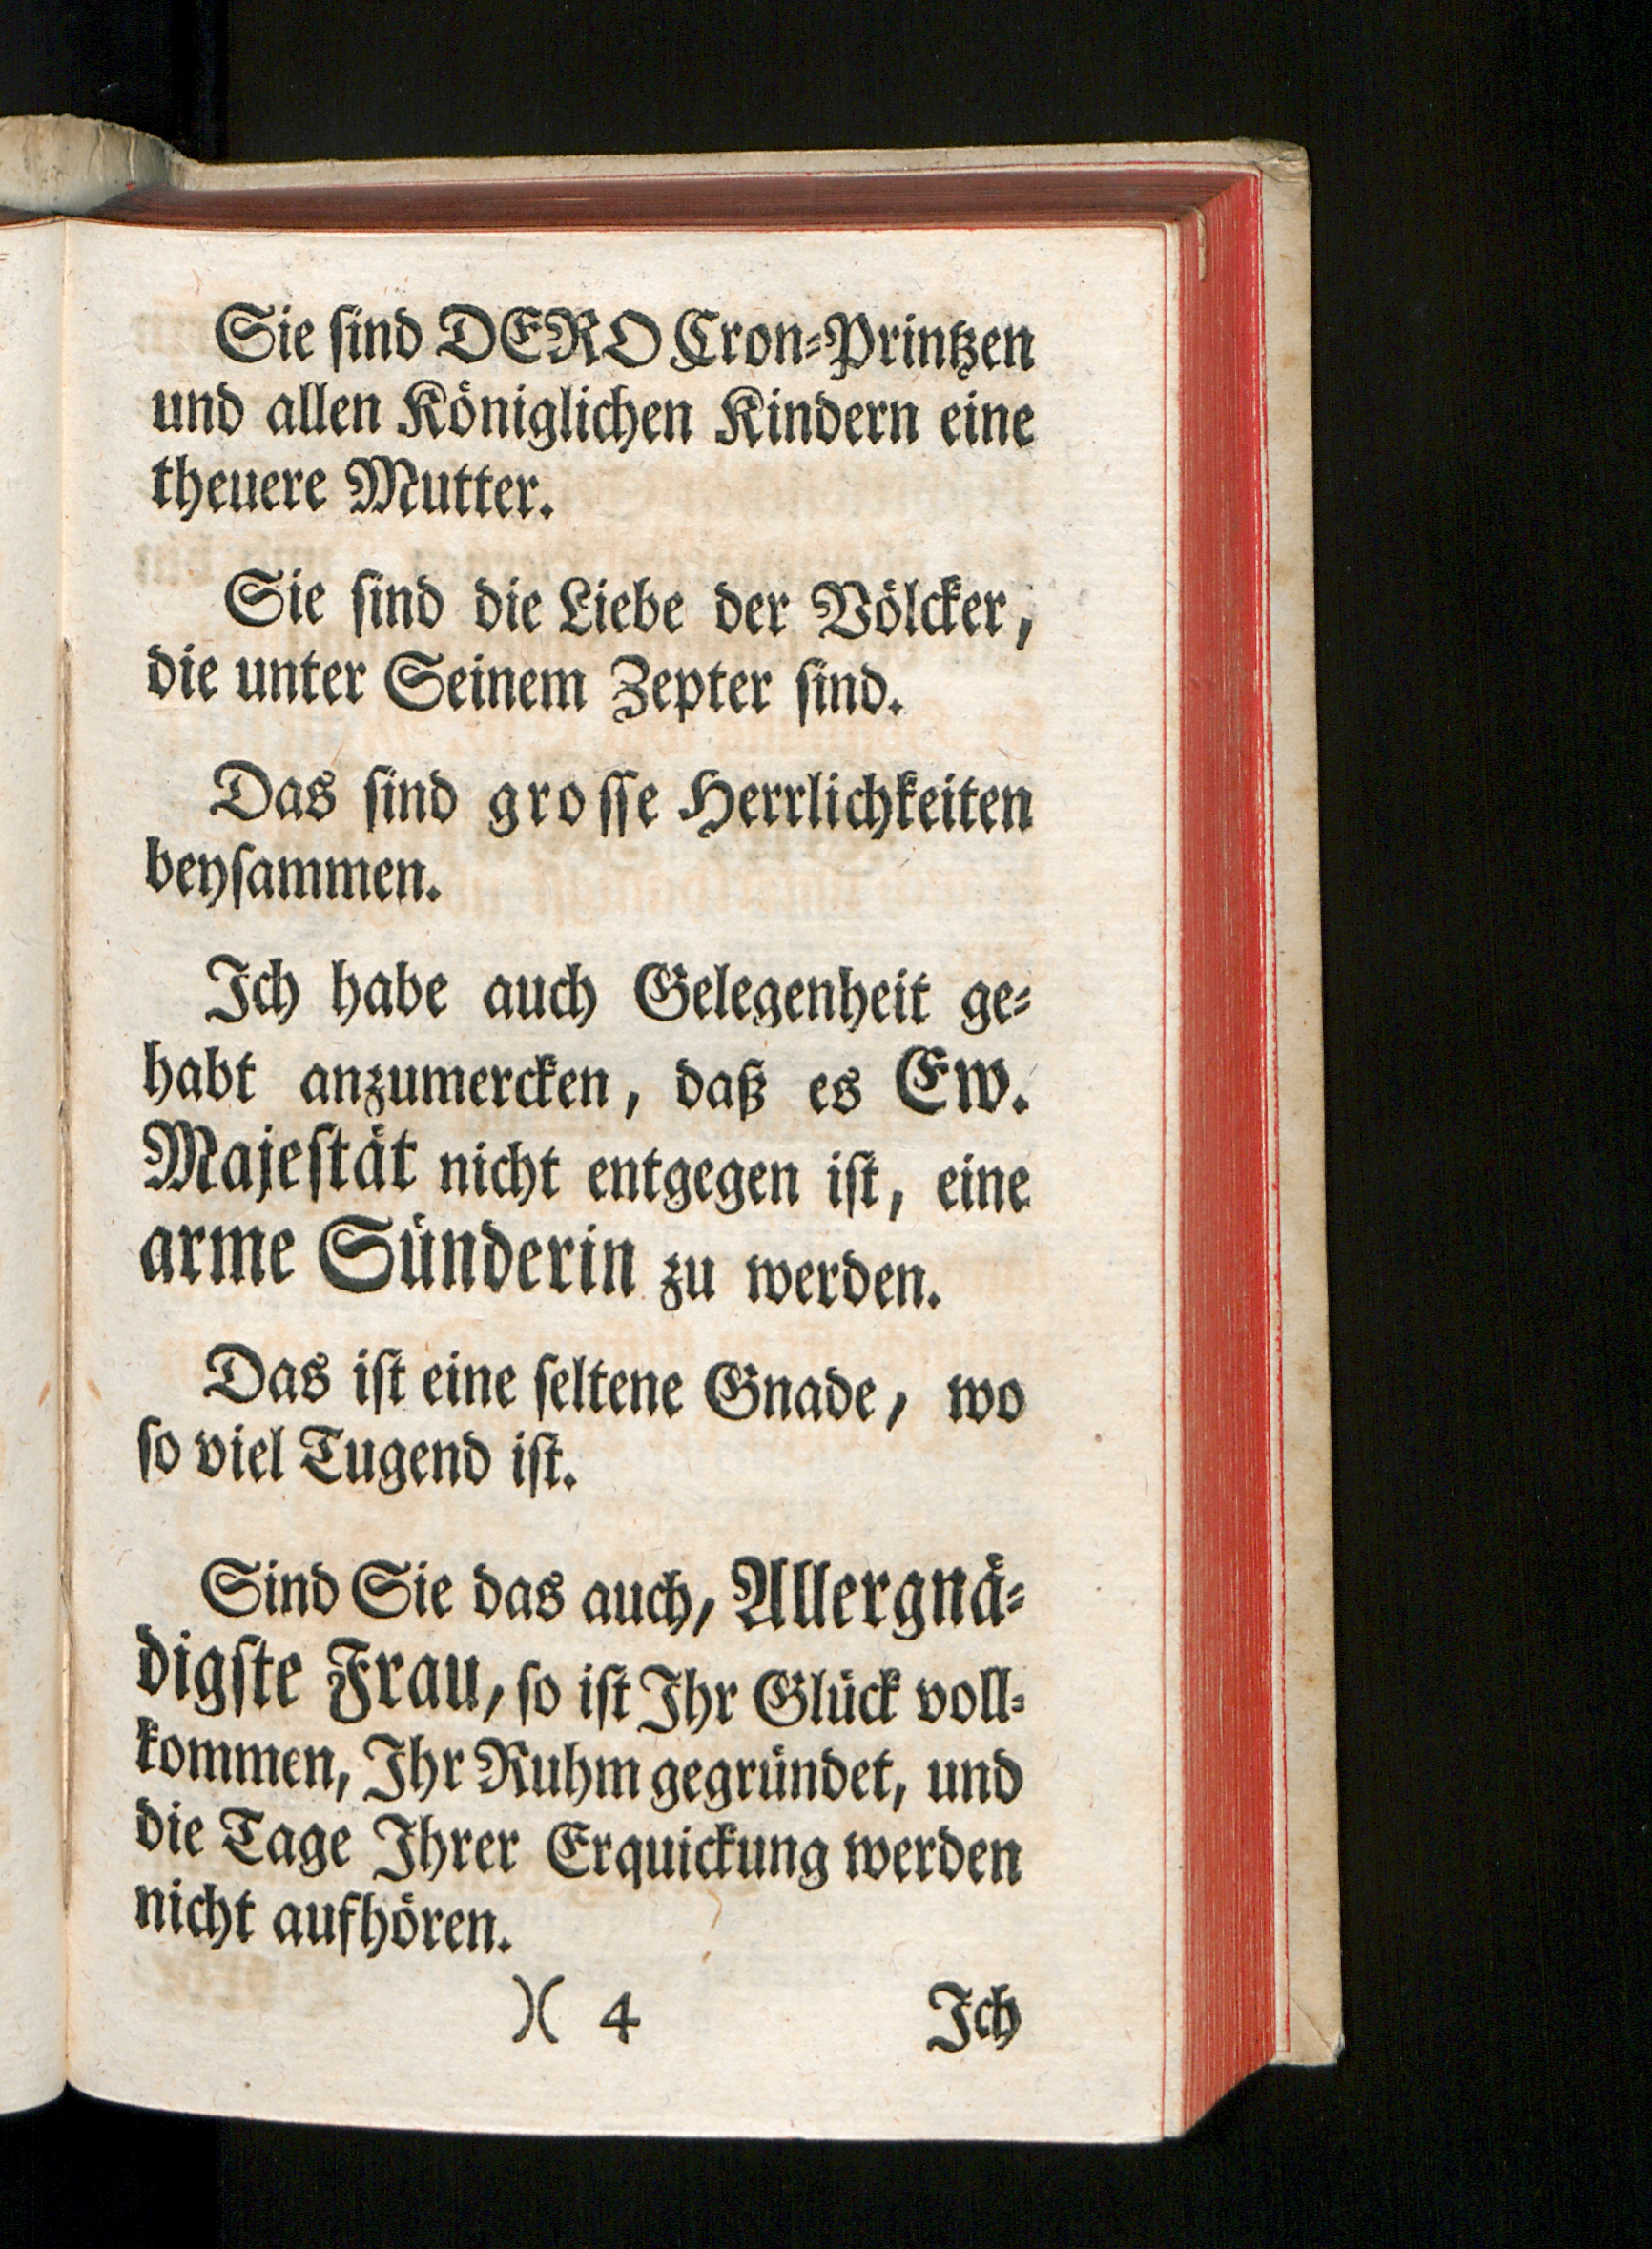 Sie ſind DERO Cron⸗Printzen
und allen Königlichen Kindern eine
theuere Mutter.
Sie ſind die Liebe der Völcker,
die unter Seinem Zepter ſind.
Das ſind groſſe Herrlichkeiten
beyſammen.
Ich habe auch Gelegenheit ge⸗
habt anzumercken, daß es Ew.
Majeſtät nicht entgegen iſt, eine
arme Sünderin zu werden.
Das iſt eine ſeltene Gnade, wo
ſo viel Tugend iſt.
Sind Sie das auch, Allergnä⸗
digſte Frau, ſo iſt Ihr Glück voll⸗
kommen, Ihr Ruhm gegründet, und
die Tage Ihrer Erquickung werden
nicht aufhören.
)( 4 Ich